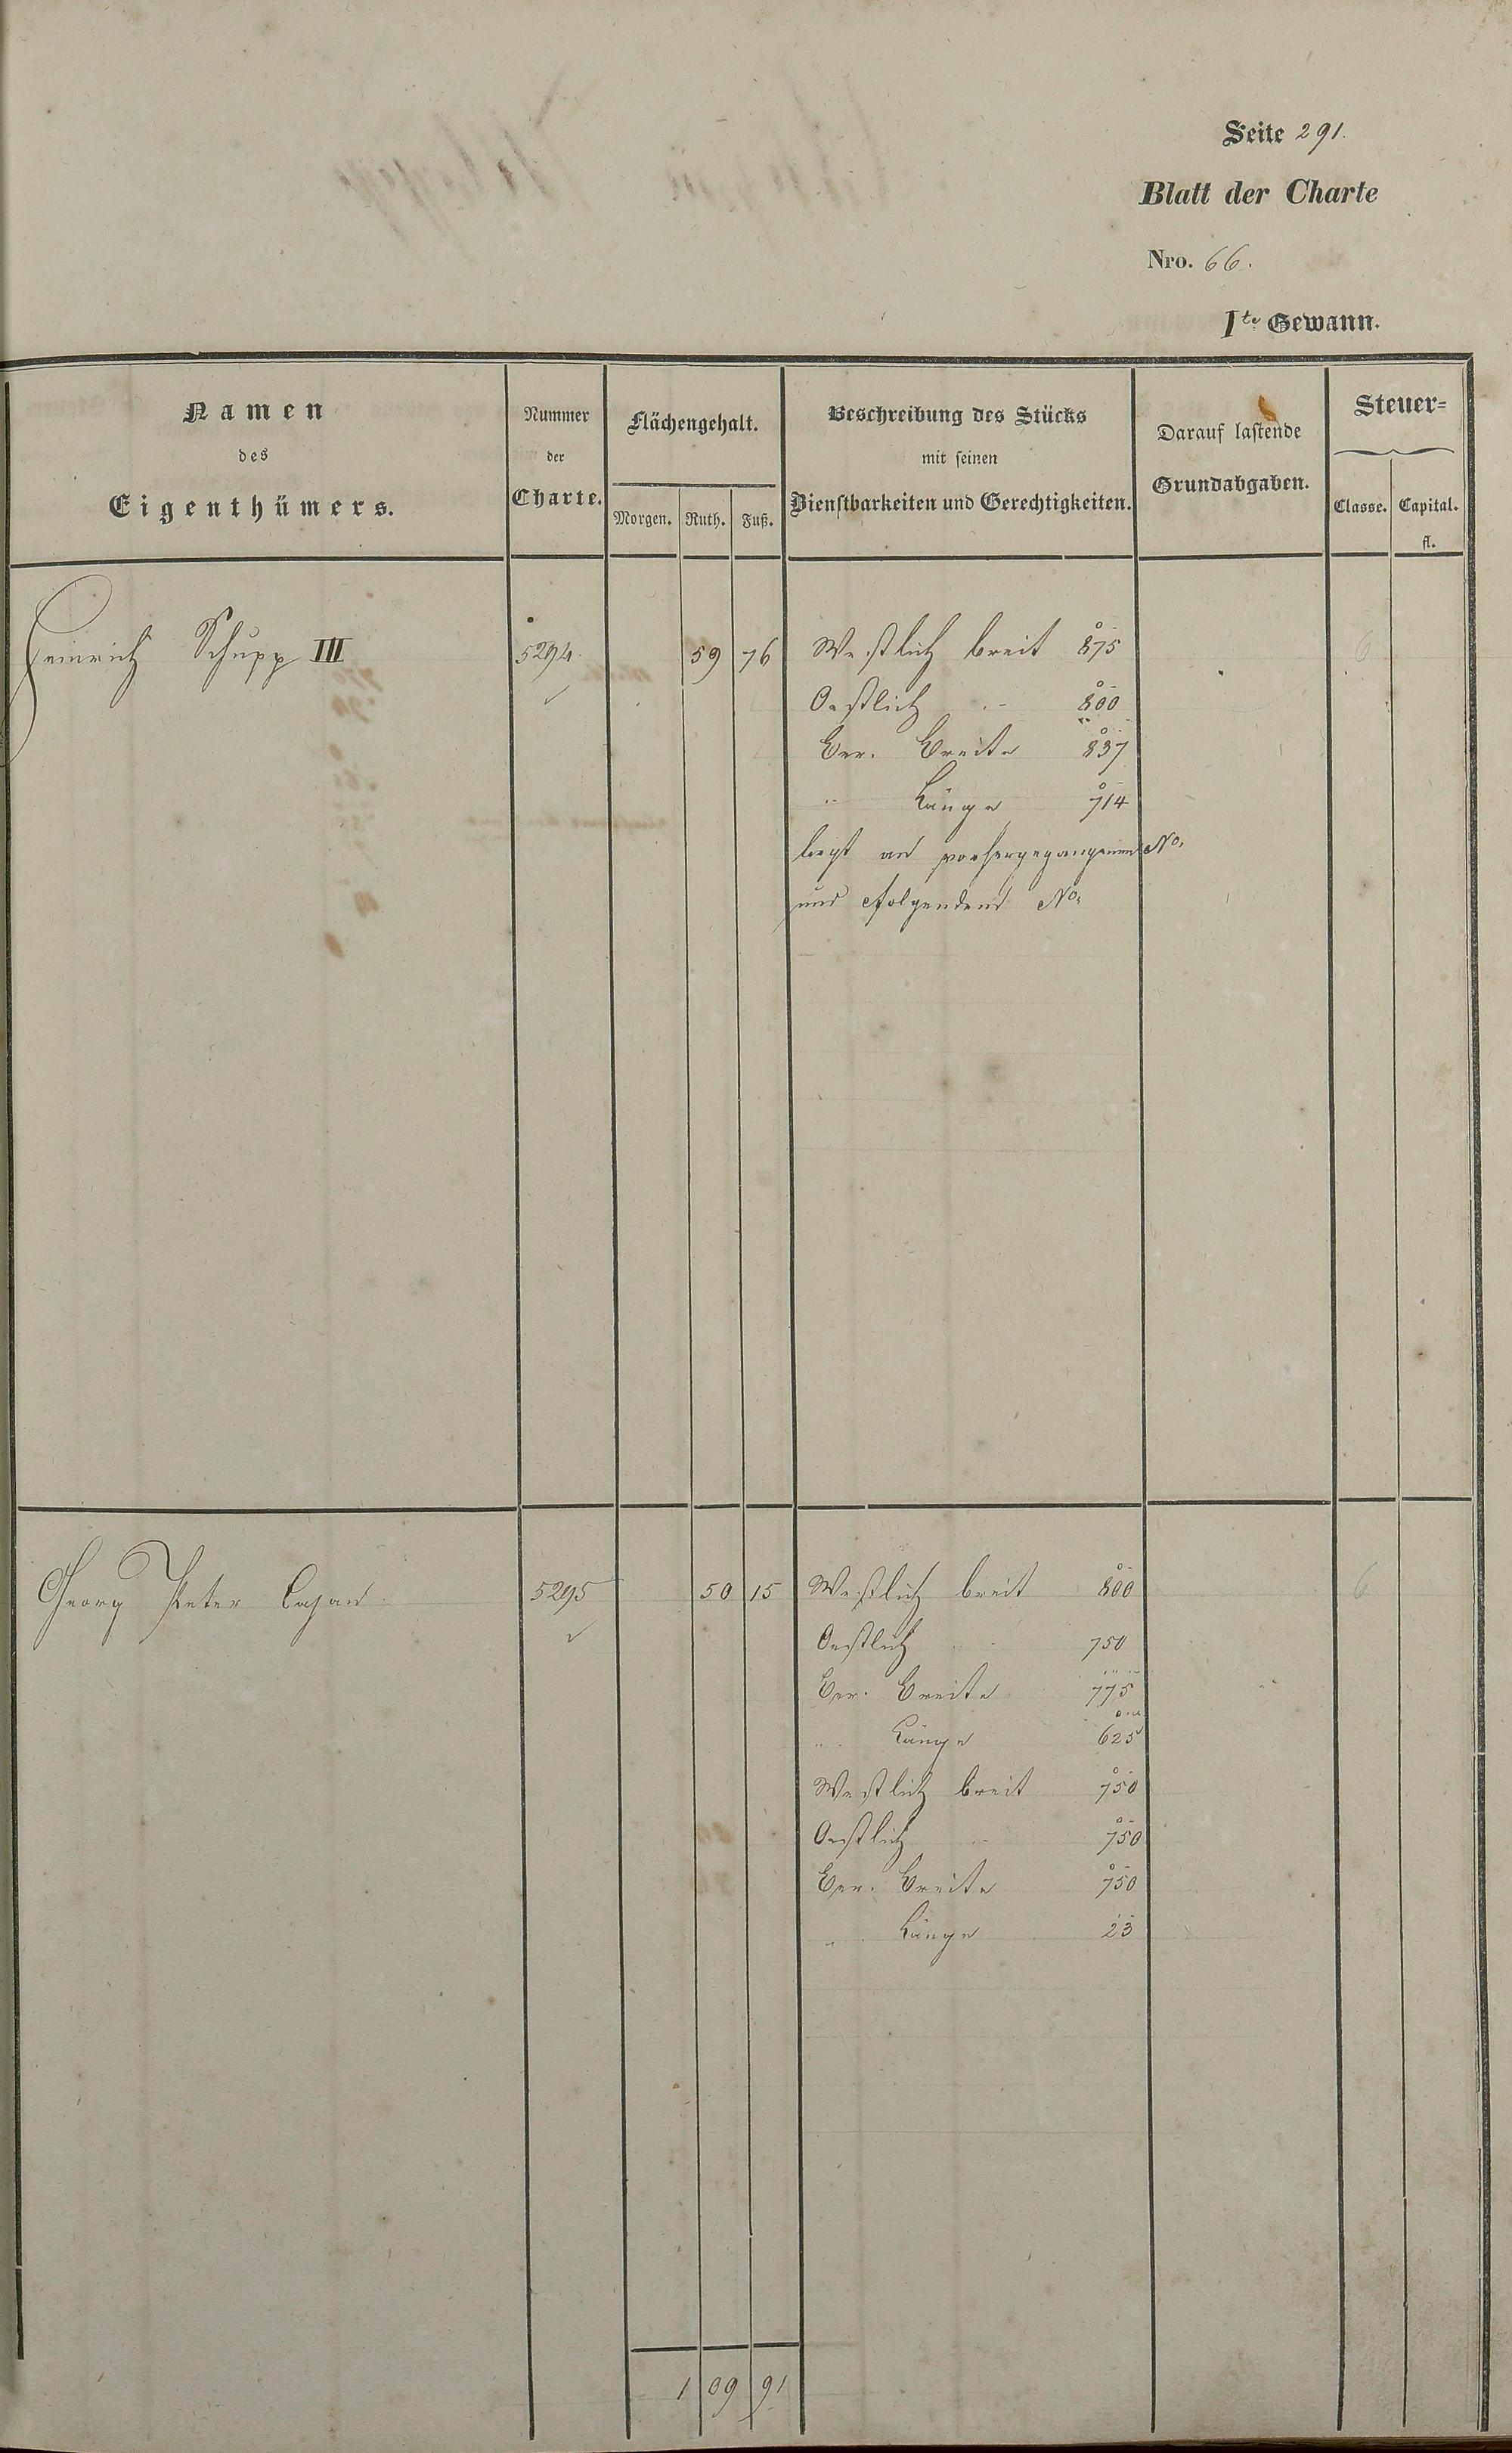 Seite 291.
Blatt der Charte
Nro. 66.
Ite Gewann.
Namen
des
Eigenthümers.
Nummer
der
Charte.
Flächengehalt.
Morgen. Ruth. Fuß.
Beschreibung des Stücks
mit seinen
Dienstbarkeiten und Gerechtigkeiten.
Darauf lastende
Grundabgaben.
Steuer-
Classe. Capital.
fl.
Heinrich Schupp III 5294. 59 76 Westlich breit 875 6
Oestlich " 800
Ber. Breite 837
" Länge 714
liegt an vorhergegangener No.
und folgendend No.
Georg Peter 5295 50 15 Westlich breit 800 6
Oestlich " 750
Ber. Breite 775
" Länge 625
Westlich breit 750
Oestlich " 750
Ber. Breite 750
" Länge 23
1 09 91